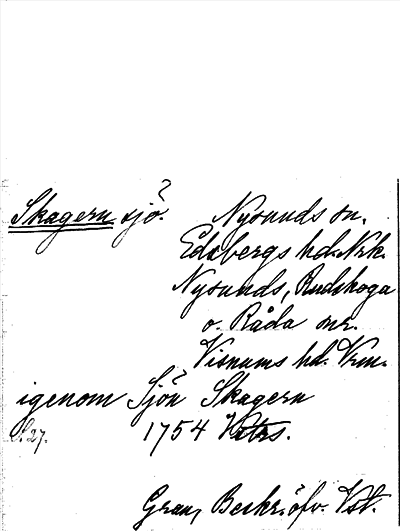 Skagern sjö.
Nysunds sn.
Edsbergs hd. Nrk.
Nysunds, Rudskoga
o. Råda snr.
Visnums hd. Vrm.
igenom Sjön Skagern
S. 27. 1754
Gran, Beskr. öfv. Vst.